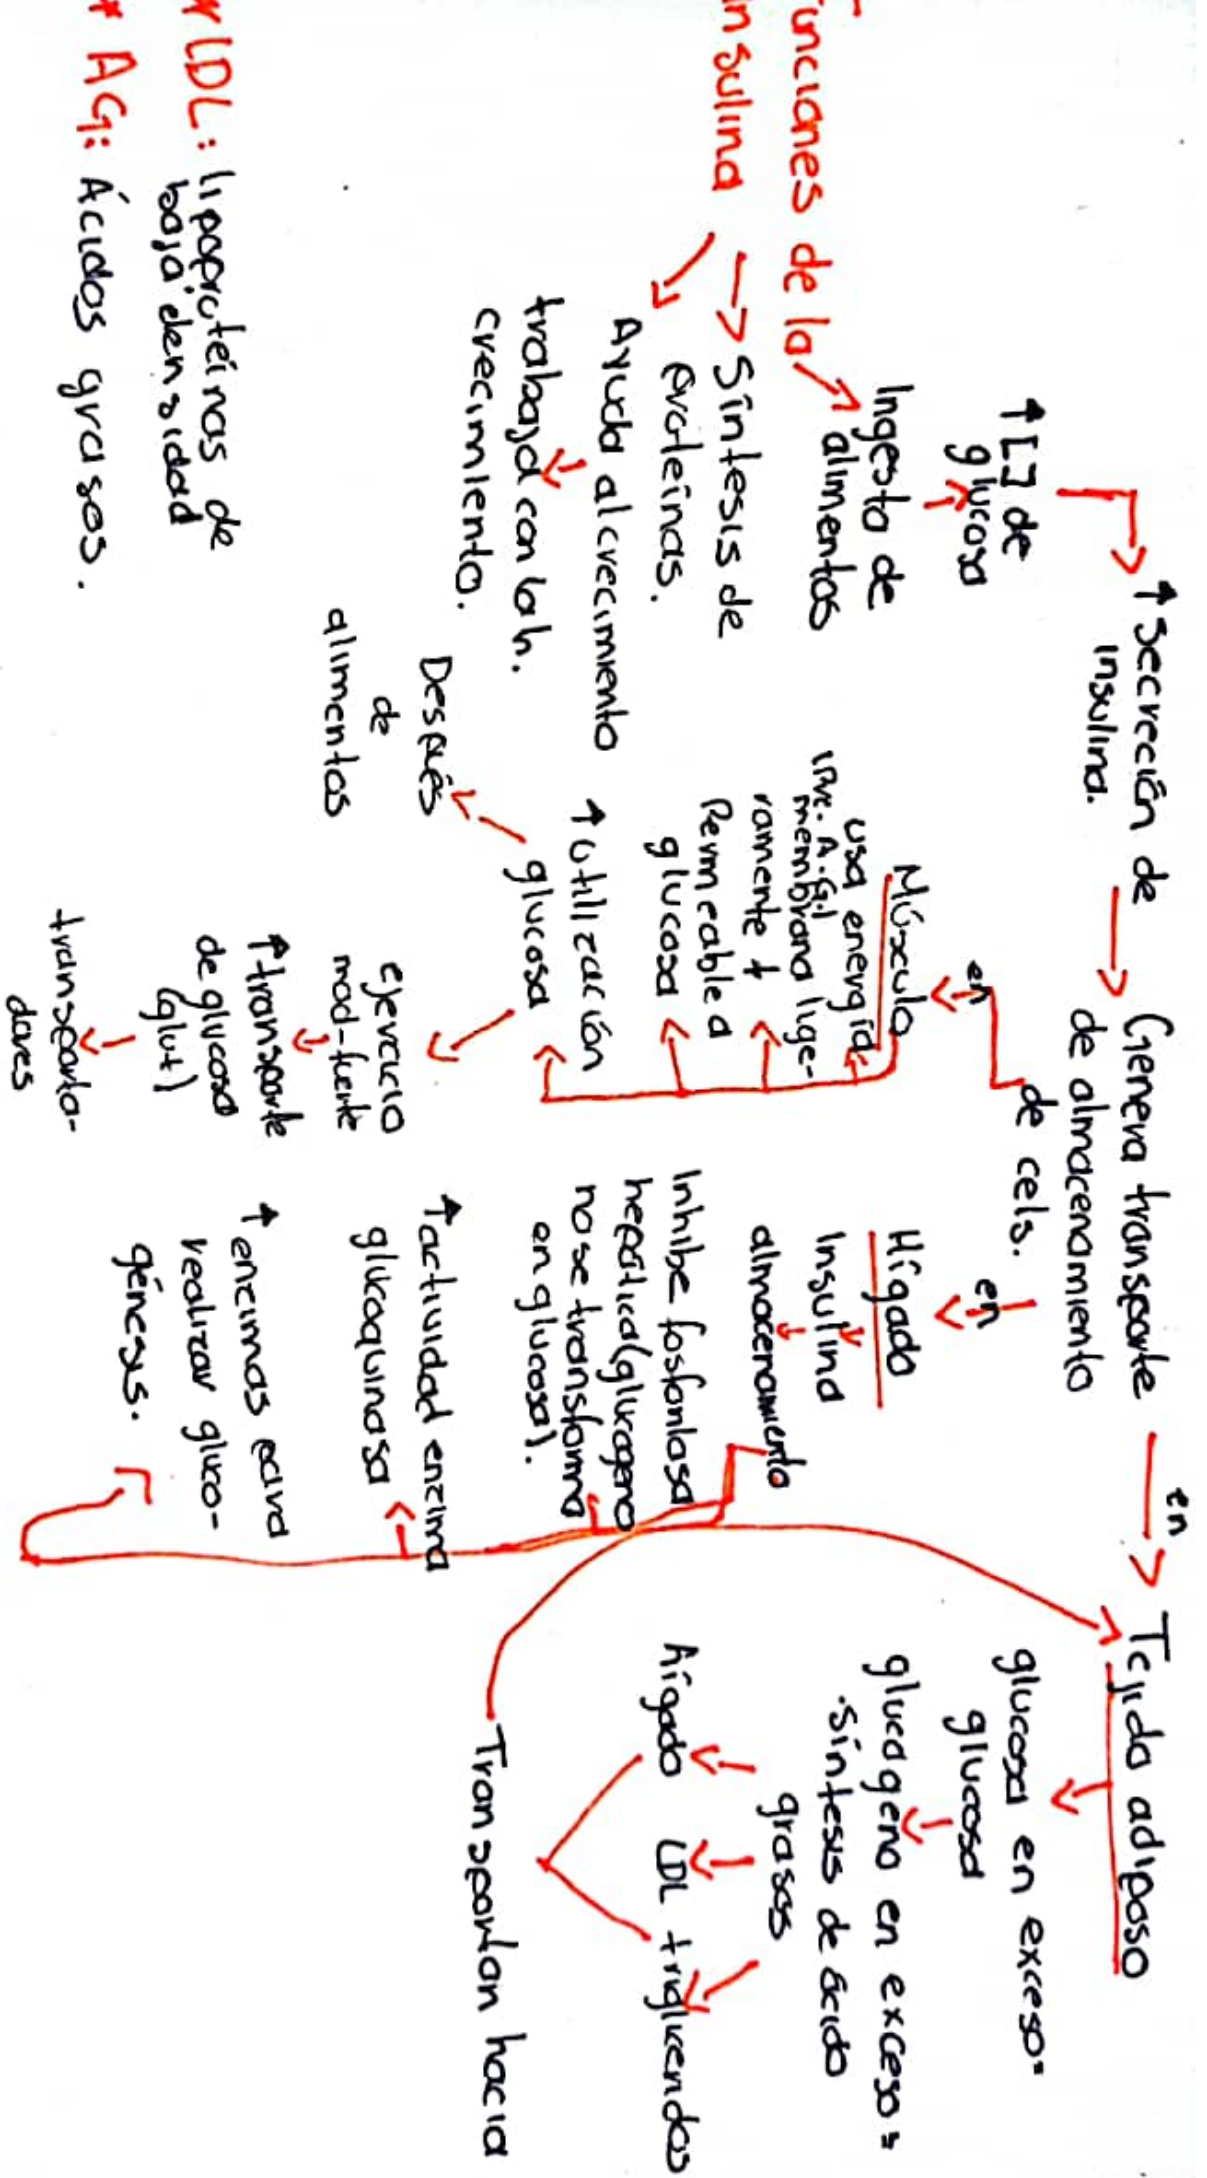 Funciones de la
insulina
Ingesta de
alimentos
↑[] de
glucosa
↑ Secreción de
insulina.
Genera transporte
de almacenamiento
de cels.
en
Músculo
usa energía
membrana lige-
ramente +
Permeable a
glucosa
↑ utilización
glucosa
Después
de
alimentos
ejercicio
mod-fuerte
↑transporte
de glucosa
(glut)
transporta-
dores
en
Hígado
Insulina
almacenamiento
Inhibe fosforilasa
hepática(glucogeno
no se transforma
en glucosa).
↑actividad enzima
glucoquinasa
↑ enzimas para
realizar gluco-
génesis.
en
Tejido adiposo
glucosa en exceso=
glucosa
glucogeno en exceso=
.síntesis de ácido
grasos
hígado LDL trigliceridos
Transportan hacia
Síntesis de
proteínas.
Ayuda al crecimiento
trabaja con la h.
crecimiento.
* LDL: lipoproteínas de
baja densidad
* AG: Ácidos grasos.